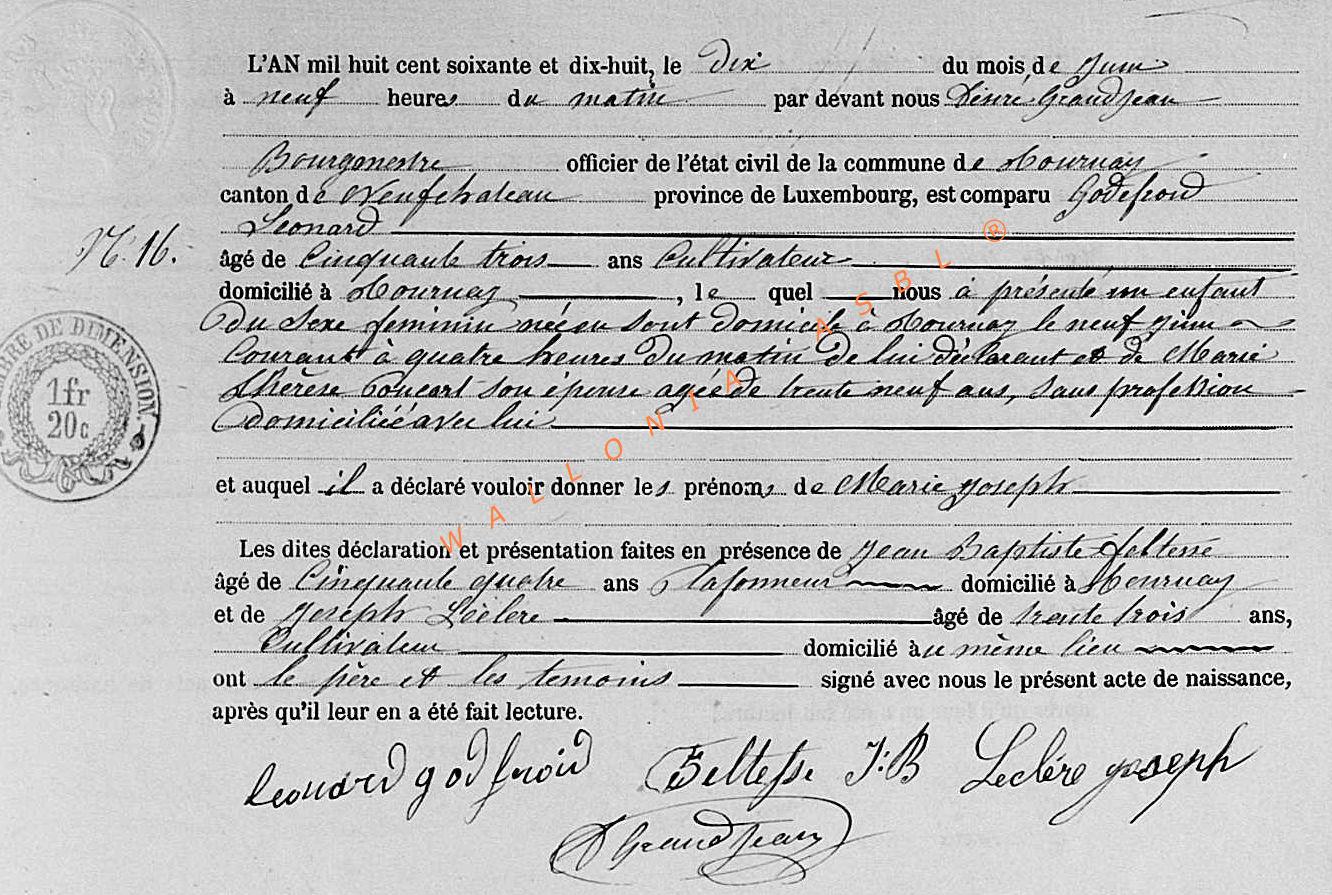 L'AN mil huit cent soixante et dix-huit, le dix du mois de Juin
à neuf heures du matin par devant nous Désiré Grandjean
Bourgmestre officier de l'état civil de la commune de Tournay
canton de Neufchateau province de Luxembourg, est comparu Godefroid
Leonard
N. 16.
âgé de Cinquante trois ans Cultivateur
domicilié à Tournay, le quel nous à présenté un enfant
du Sexe feminin née en sont domicile à Tournay le neuf Juin
Courant à quatre heures du matin de lui déclarant et de Marie
thérèse son épouse agée de trente neuf ans, Sans profession
domiciliée avec lui
et auquel il a déclaré vouloir donner les prénoms de Marie Joseph
Les dites déclaration et présentation faites en présence de Jean Baptiste
âgé de Cinquante quatre ans Plafonneur domicilié à Tournay
et de Joseph Leclere âgé de trente trois ans,
Cultivateur domicilié au même lieu
ont le père et les temoins signé avec nous le présent acte de naissance,
après qu'il leur en a été fait lecture.
Leonard godfroid Feltesse J:B Leclére joseph
D Grandjean
DE DIMENSION.
1fr
20c
WALLONIA ASBL ®